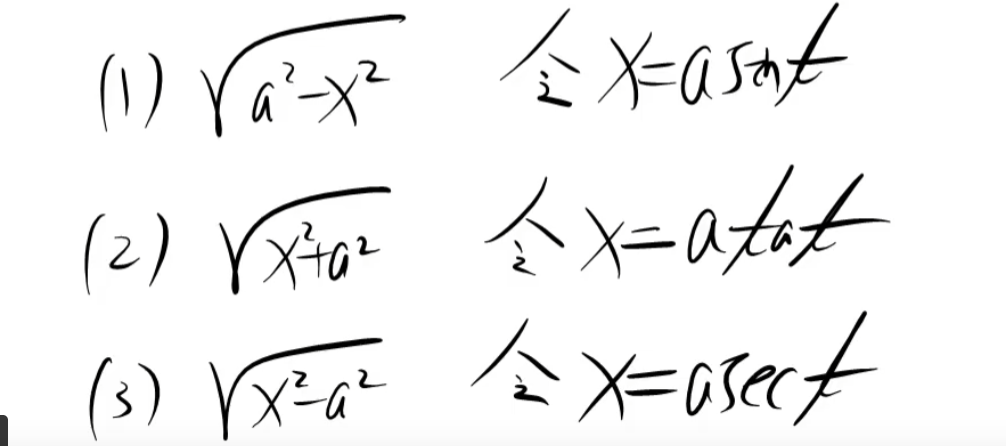 (1) √(a²-x²) 令 x=a sint
(2) √(x²+a²) 令 x=a tat
(3) √(x²-a²) 令 x=a sect